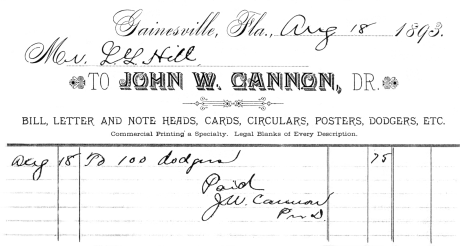 Gainesville, Fla., Aug 18 1893.
Mr. L L Hill
TO JOHN W. CANNON, DR.
BILL, LETTER AND NOTE HEADS, CARDS, CIRCULARS, POSTERS, DODGERS, ETC.
Commercial Printing a Specialty. Legal Blanks of Every Description.
Aug 18 To 100 dodgers 75
Paid
J W. Cannon